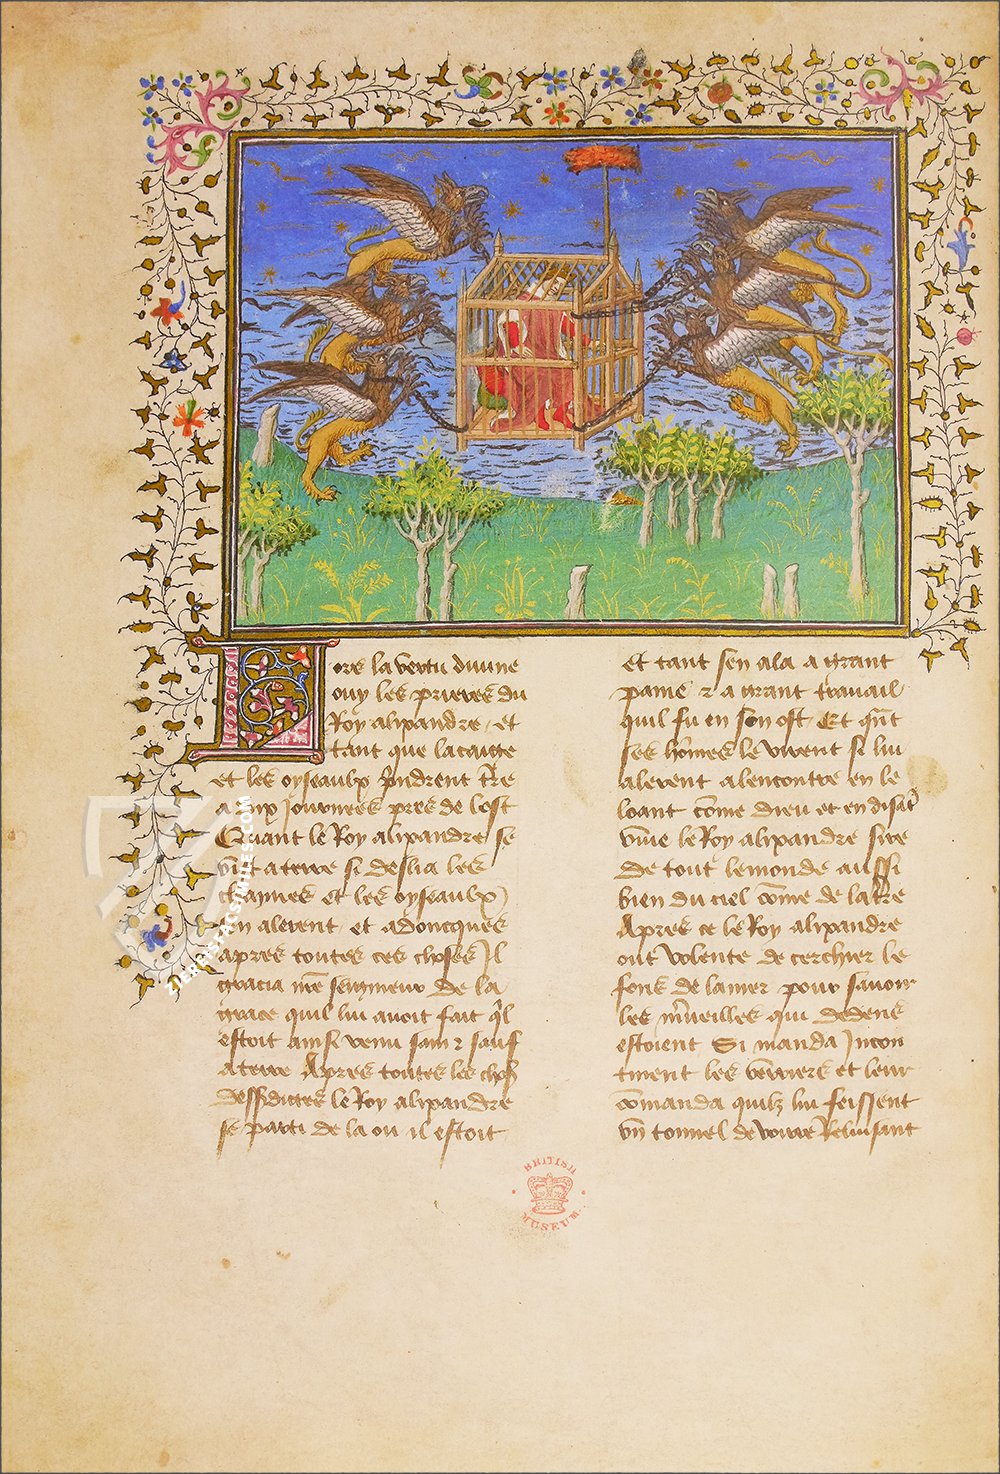 Lors la vertu divine
ouy les prieres du
Roy alixandre et
tant que la caitte
et les oyseaulx prindrent tre
a dix journees pres de lost
Quant le Roy alixandre se
vit a terre si deslia les
chaynes et les oyseaulx
sen alerent et adoncques
apres toutes ces choses Il
gracia nre seigneur de la
grace quil lui avoit fait ql
estoit ainsi venu sain z sauf
a terre Apres toutes les choses
dessusdictes le Roy alixandre
se parti de la ou il estoit
Et tant sen ala a grant
paine z a grant travail
quil fu en son ost Et qnt
ses homes le virent si lui
alerent alencontre en le
loant come dieu et en disant
vive le Roy alixandre sire
de tout le monde aussi
bien du ciel come de la tre
Apres ce le Roy alixandre
out volente de cerchier le
fons de la mer pour savoir
les mveilles qui dedens
estoient Si manda Incon
tinent les verriers et leur
comanda quilz lui feissent
vn tonnel de voirre Reluisant
BRITISH
MUSEUM
ZIEREISFACSIMILES.COM